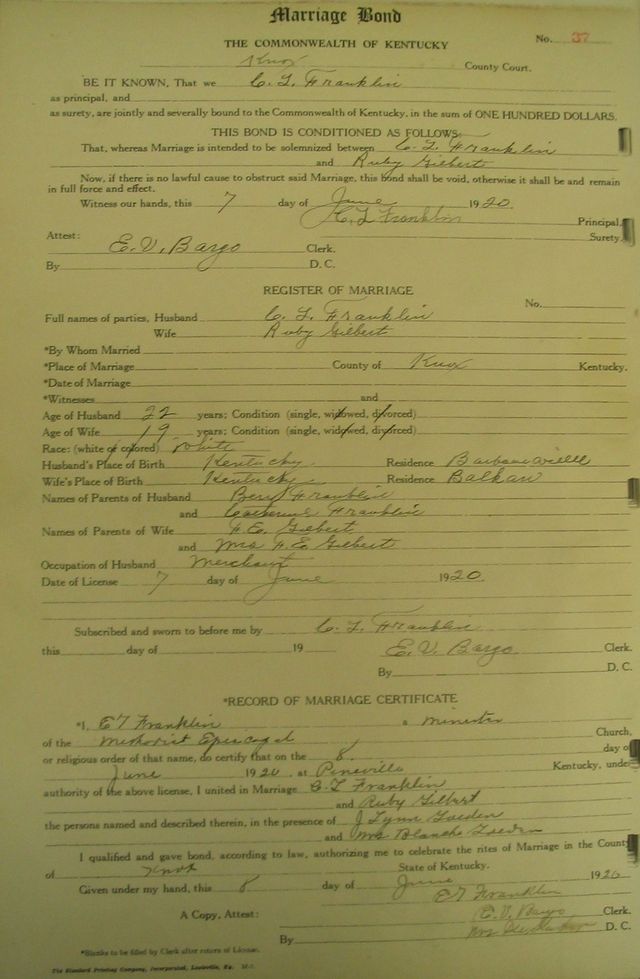 Marriage Bond
THE COMMONWEALTH OF KENTUCKY
No. 37
Knox County Court.
BE IT KNOWN, That we C. L. Franklin
as principal, and
as surety, are jointly and severally bound to the Commonwealth of Kentucky, in the sum of ONE HUNDRED DOLLARS.
THIS BOND IS CONDITIONED AS FOLLOWS:
That, whereas Marriage is intended to be solemnized between C. L. Franklin
and Ruby Gilbert
Now, if there is no lawful cause to obstruct said Marriage, this bond shall be void, otherwise it shall be and remain
in full force and effect.
Witness our hands, this 7 day of June 1920.
C L Franklin Principal,
Surety.
Attest:
E. V. Bargo Clerk.
By D. C.
REGISTER OF MARRIAGE
No.
Full names of parties, Husband C. L. Franklin
Wife Ruby Gilbert
*By Whom Married
*Place of Marriage County of Knox Kentucky.
*Date of Marriage
*Witnesses and
Age of Husband 22 years; Condition (single, widowed, divorced)
Age of Wife 19 years; Condition (single, widowed, divorced)
Race: (white or colored) White
Husband's Place of Birth Kentucky Residence Barbourville
Wife's Place of Birth Kentucky Residence Balkan
Names of Parents of Husband Franklin
and Catherine Franklin
Names of Parents of Wife H. E. Gilbert
and Mrs H. E. Gilbert
Occupation of Husband Merchant
Date of License 7 day of June 1920.
Subscribed and sworn to before me by C. L. Franklin
this day of 19 E. V. Bargo Clerk.
By D. C.
*RECORD OF MARRIAGE CERTIFICATE
*I, Franklin a minister
of the Methodist Episcopal Church,
or religious order of that name, do certify that on the 8 day of
June 1920, at Pineville Kentucky, under
authority of the above license, I united in Marriage C L Franklin
and Ruby Gilbert
the persons named and described therein, in the presence of J Lynn
and Mrs Blanche
I qualified and gave bond, according to law, authorizing me to celebrate the rites of Marriage in the County
of Knox State of Kentucky.
Given under my hand, this 8 day of June 1920
Franklin
A Copy, Attest: E. V. Bargo Clerk.
By D. C.
*Blanks to be filled by Clerk after return of License.
The Standard Printing Company, Incorporated, Louisville, Ky.